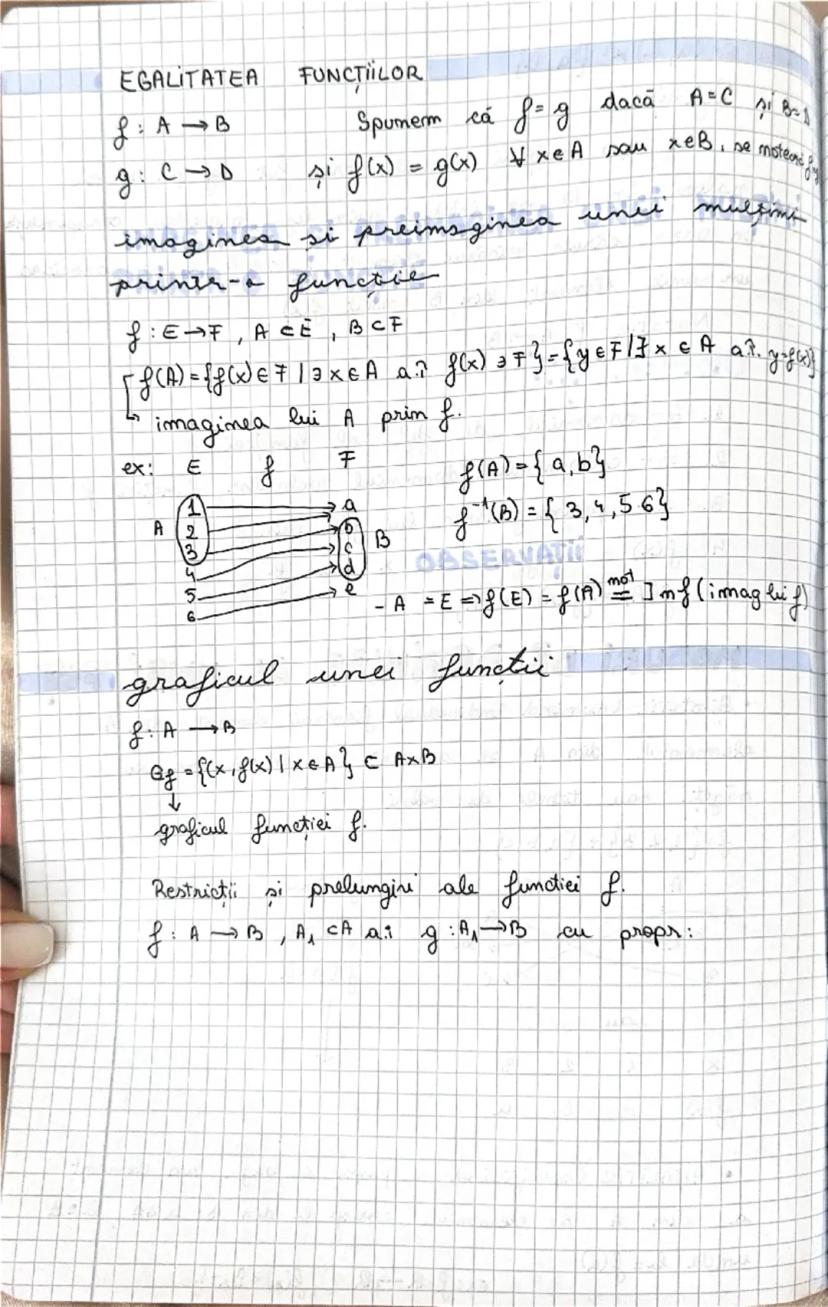 EGALITATEA FUNCȚIILOR
f : A → B Spunem că f = g dacă A = C și B = D
g : C → D și f(x) = g(x) ∀ x ∈ A sau x ∈ B, se notează
imaginea și preimaginea unei mulțimi
printr-o funcție
f : E → F , A ⊂ E , B ⊂ F
f(A) = {f(x) ∈ F | ∃ x ∈ A a.î f(x) ∋ F} = {y ∈ F | ∃ x ∈ A a.î. y = f(x)}
↳ imaginea lui A prim f.
ex: E f F f(A) = { a, b}
f⁻¹(B) = { 3, 4, 5 6}
A 1 a
2 b B
3 c
4 d
5 e
6
- A = E ⇒ f(E) = f(A) not = Im f (imag lui f)
OBSERVAȚII
graficul unei funcții
f : A → B
Gf = {(x, f(x) | x ∈ A} ⊂ A×B
↓
graficul funcției f.
Restricții și prelungiri ale funcției f.
f : A → B , A₁ ⊂ A a.î g : A₁ → B cu propr: